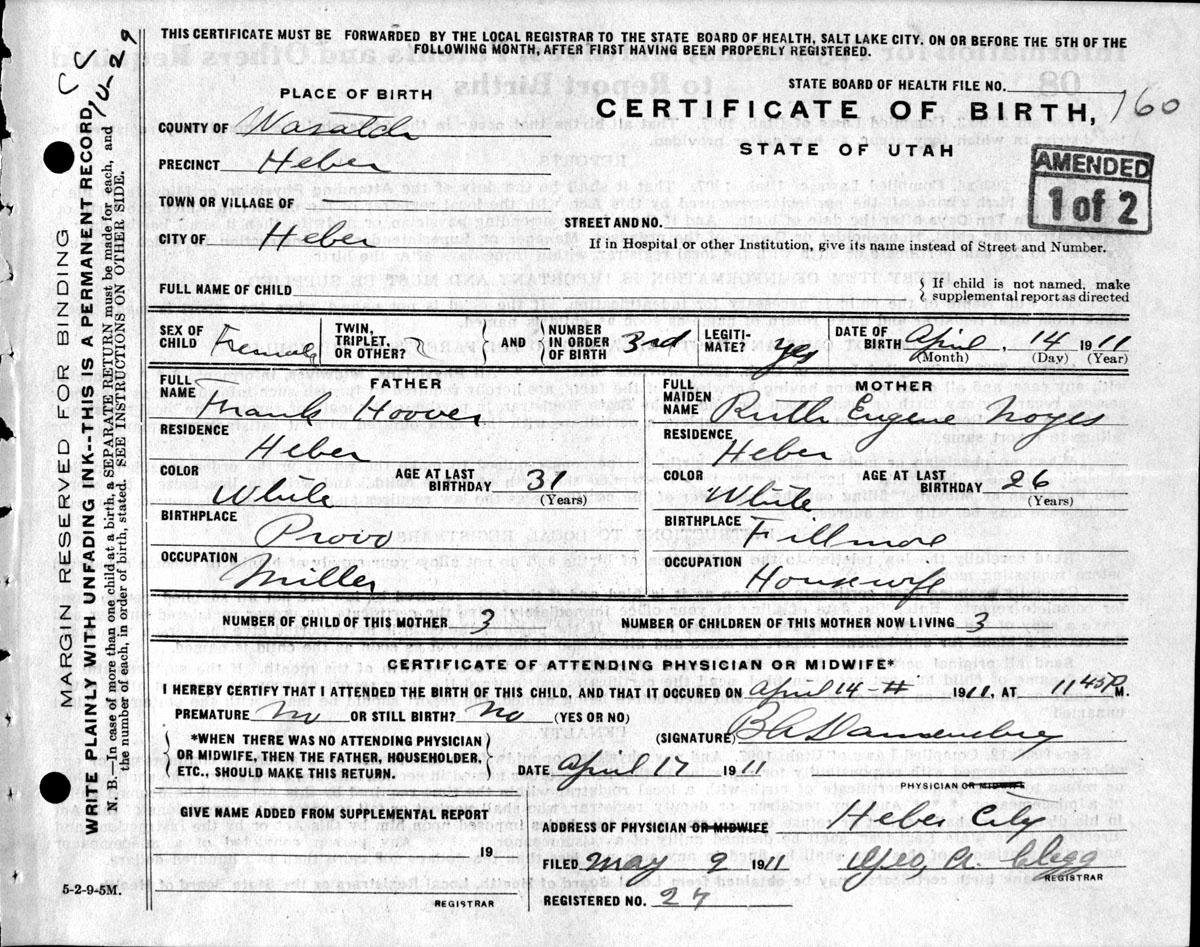 THIS CERTIFICATE MUST BE FORWARDED BY THE LOCAL REGISTRAR TO THE STATE BOARD OF HEALTH, SALT LAKE CITY. ON OR BEFORE THE 5TH OF THE
FOLLOWING MONTH, AFTER FIRST HAVING BEEN PROPERLY REGISTERED.
STATE BOARD OF HEALTH FILE NO. 160
PLACE OF BIRTH
CERTIFICATE OF BIRTH,
STATE OF UTAH
AMENDED
1 of 2
COUNTY OF Wasatch
PRECINCT Heber
TOWN OR VILLAGE OF
STREET AND NO.
CITY OF Heber
If in Hospital or other Institution, give its name instead of Street and Number.
FULL NAME OF CHILD
{ If child is not named, make
supplemental report as directed
SEX OF CHILD Female
TWIN, TRIPLET, OR OTHER?
} AND {
NUMBER IN ORDER OF BIRTH 3rd
LEGITI-MATE? yes
DATE OF BIRTH April, 14 1911
(Month) (Day) (Year)
FATHER
FULL NAME Frank Hoover
RESIDENCE Heber
COLOR White
AGE AT LAST BIRTHDAY 31
(Years)
BIRTHPLACE Provo
OCCUPATION Miller
MOTHER
FULL MAIDEN NAME Ruth Eugene Noyes
RESIDENCE Heber
COLOR White
AGE AT LAST BIRTHDAY 26
(Years)
BIRTHPLACE Fillmore
OCCUPATION Housewife
NUMBER OF CHILD OF THIS MOTHER 3
NUMBER OF CHILDREN OF THIS MOTHER NOW LIVING 3
CERTIFICATE OF ATTENDING PHYSICIAN OR MIDWIFE*
I HEREBY CERTIFY THAT I ATTENDED THE BIRTH OF THIS CHILD, AND THAT IT OCCURED ON April 14 1911, AT 11 45 P M.
PREMATURE No OR STILL BIRTH? No (YES OR NO)
(SIGNATURE)
*WHEN THERE WAS NO ATTENDING PHYSICIAN
OR MIDWIFE, THEN THE FATHER, HOUSEHOLDER,
ETC., SHOULD MAKE THIS RETURN.
DATE April 17 1911
PHYSICIAN OR MIDWIFE
GIVE NAME ADDED FROM SUPPLEMENTAL REPORT
19
REGISTRAR
ADDRESS OF PHYSICIAN OR MIDWIFE Heber City
FILED May 9 1911 Geo. A. Clegg
REGISTRAR
REGISTERED NO. 27
5-2-9-5M.
MARGIN RESERVED FOR BINDING
WRITE PLAINLY WITH UNFADING INK--THIS IS A PERMANENT RECORD
N. B.—In case of more than one child at a birth, a SEPARATE RETURN must be made for each, and
the number of each, in order of birth, stated. SEE INSTRUCTIONS ON OTHER SIDE.